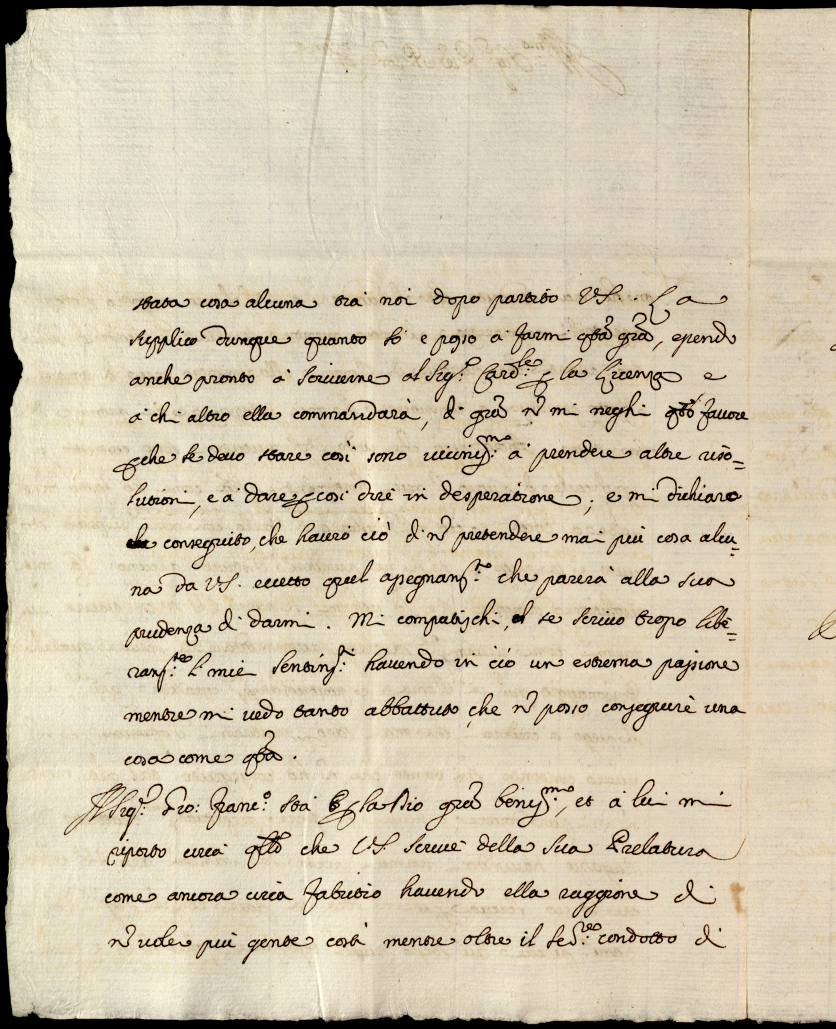 stata cosa alcuna trà noi dopo partito VS. . La
supplico dunque quanto sò e posso a' farmi q̃sta gr̃a, essendo
anche pronto à scriverne al Sig.r Card.le p la licenza e
à chi altro ella commandarà, di gr̃a nõ mi neghi q̃sto favore
pche se devo stare così sono viciniss.mo a' prendere altre riso=
lutioni, e a' dare p così dire in desperatione; e mi dichiaro
conseguito, che havrò ciò di nõ pretendere mai più cosa alcu=
na da VS. eccetto quel assegnam.to che parerà alla sua
prudenza di darmi. Mi compatischi, se scrivo tropo libe=
ram.te li miei sentim.ti havendo in ciò un estrema passione
mentre mi vedo tanto abbattuto che nõ posso conseguire una
cosa come q̃sta.
Il Sig.r Gio: Franc.o stà p la Dio gr̃a beniss.mo, et à lui mi
riporto circa q̃llo che VS. scrive della sua Prelatura
come ancora circa Fabritio havendo ella raggione di
nõ voler più gente costì mentre oltre il condotto di